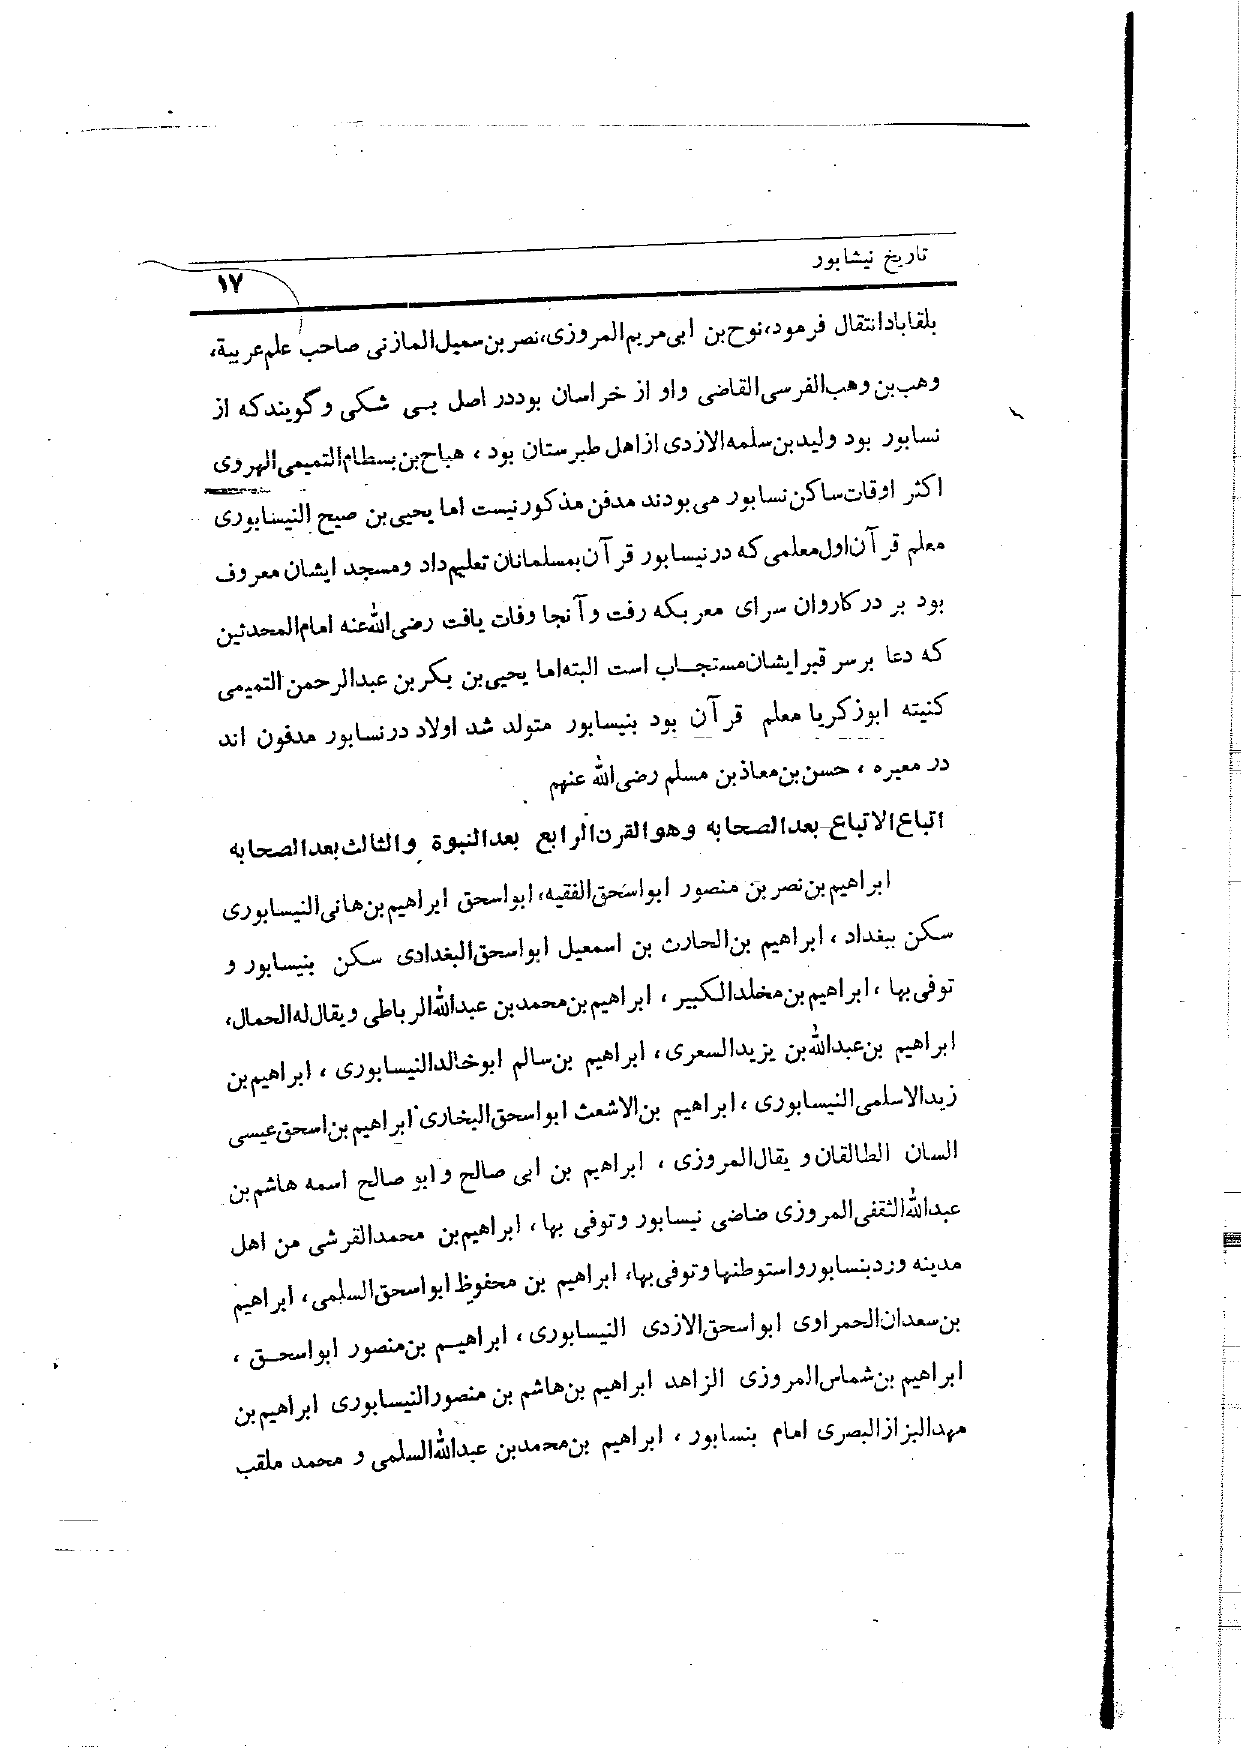 تاریخ نیشابور
۱۷
بلقاباد انتقال فرمود، نوح بن ابی مریم المروزی، نصر بن سمیل المازنی صاحب علم عربیة،
وهب بن وهب الفرسی القاضی واو از خراسان بود در اصل بی شکی و گویند که از
نسابور بود ولید بن سلمه الازدی از اهل طبرستان بود ، هیاج بن بسطام التمیمی الهروی
اکثر اوقات ساکن نسابور می بودند مدفن مذکور نیست اما یحیی بن صیح النیسابوری
معلم قرآن اول معلمی که در نیسابور قرآن بمسلمانان تعلیم داد ومسجد ایشان معروف
بود بر در کاروان سرای معر بکه رفت وآنجا وفات یافت رضی الله عنه امام المحدثین
که دعا بر سر قبر ایشان مستجاب است البته اما یحیی بن بکر بن عبدالرحمن التمیمی
کنیته ابوزکریا معلم قرآن بود بنیسابور متولد شد اولاد در نسابور مدفون اند
در معیره ، حسن بن معاذ بن مسلم رضی الله عنهم
اتباع الاتباع بعد الصحابه وهو القرن الرابع بعد النبوة والثالث بعد الصحابه
ابراهیم بن نصر بن منصور ابواسحق الفقیه، ابواسحق ابراهیم بن هانی النیسابوری
سکن ببغداد ، ابراهیم بن الحارث بن اسمعیل ابواسحق البغدادی سکن بنیسابور و
توفی بها ، ابراهیم بن مخلد الکبیر ، ابراهیم بن محمد بن عبدالله الرباطی ویقال له الحمال،
ابراهیم بن عبدالله بن یزید السعری ، ابراهیم بن سالم ابوخالد النیسابوری ، ابراهیم بن
زید الاسلمی النیسابوری ، ابراهیم بن الاشعث ابواسحق البخاری ابراهیم بن اسحق عیسی
السان الطالقان و یقال المروزی ، ابراهیم بن ابی صالح و ابو صالح اسمه هاشم بن
عبدالله الثقفی المروزی ضاضی نیسابور وتوفی بها ، ابراهیم بن محمد القرشی من اهل
مدینه ورد بنسابور واستوطنها وتوفی بها، ابراهیم بن محفوظ ابواسحق السلمی ، ابراهیم
بن سعدان الحمراوی ابواسحق الازدی النیسابوری ، ابراهیم بن منصور ابواسحق ،
ابراهیم بن شماس المروزی الزاهد ابراهیم بن هاشم بن منصور النیسابوری ابراهیم بن
مهد البزاز البصری امام بنسابور ، ابراهیم بن محمد بن عبدالله السلمی و محمد ملقب